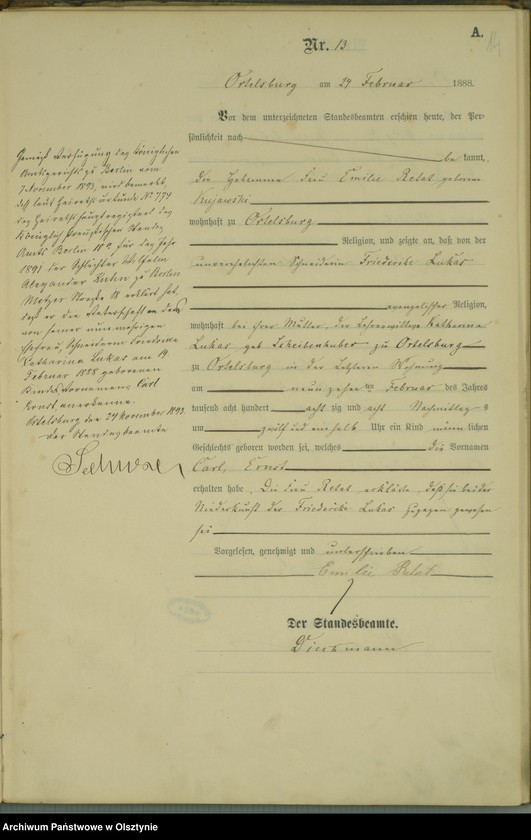 A.
Nr. 13
Ortelsburg am 24 Februar 1888.
Vor dem unterzeichneten Standesbeamten erschien heute, der Per-
sönlichkeit nach
be kannt,
die Hebamme Frau Emilie geborene
Kujawski
wohnhaft zu Ortelsburg
Religion, und zeigte an, daß von der
unverehelichten Schneiderin Friederike Lukas
evangelischer Religion,
wohnhaft bei ihrer Mutter, der Katharina
Lukas geb zu Ortelsburg
zu Ortelsburg in der Letzteren Wohnung
am neunzehn ten Februar des Jahres
tausend acht hundert acht zig und acht Nachmittags
um zwölf und ein halb Uhr ein Kind männ lichen
Geschlechts geboren worden sei, welches die Vornamen
Carl, Ernst
erhalten habe. Die Frau erklärte, daß sie bei der
Niederkunft der Friederike Lukas zugegen gewesen
sei
Vorgelesen, genehmigt und unterschrieben
Emilie
Der Standesbeamte.
Gemäß Verfügung des Königlichen
Amtsgerichts zu Berlin vom
7 November 1893, wird bemerkt,
daß laut Heirathsurkunde Nr. 774
des Heirathshauptregisters des
Königlich Preußischen Standes
Amts Berlin für das Jahr
1891 der Wilhelm
Alexander zu Berlin
Metzer Straße 18 erklärt hat,
daß er die Vaterschaft an dem
von seiner nunmehrigen
Ehefrau, Schneiderin Friederike
Katharina Lukas am 19
Februar 1888 geborenen
Kinde, Vornamens, Carl
Ernst anerkenne.
Ortelsburg den 24 November 1893
Der Standesbeamte
Archiwum Państwowe w Olsztynie